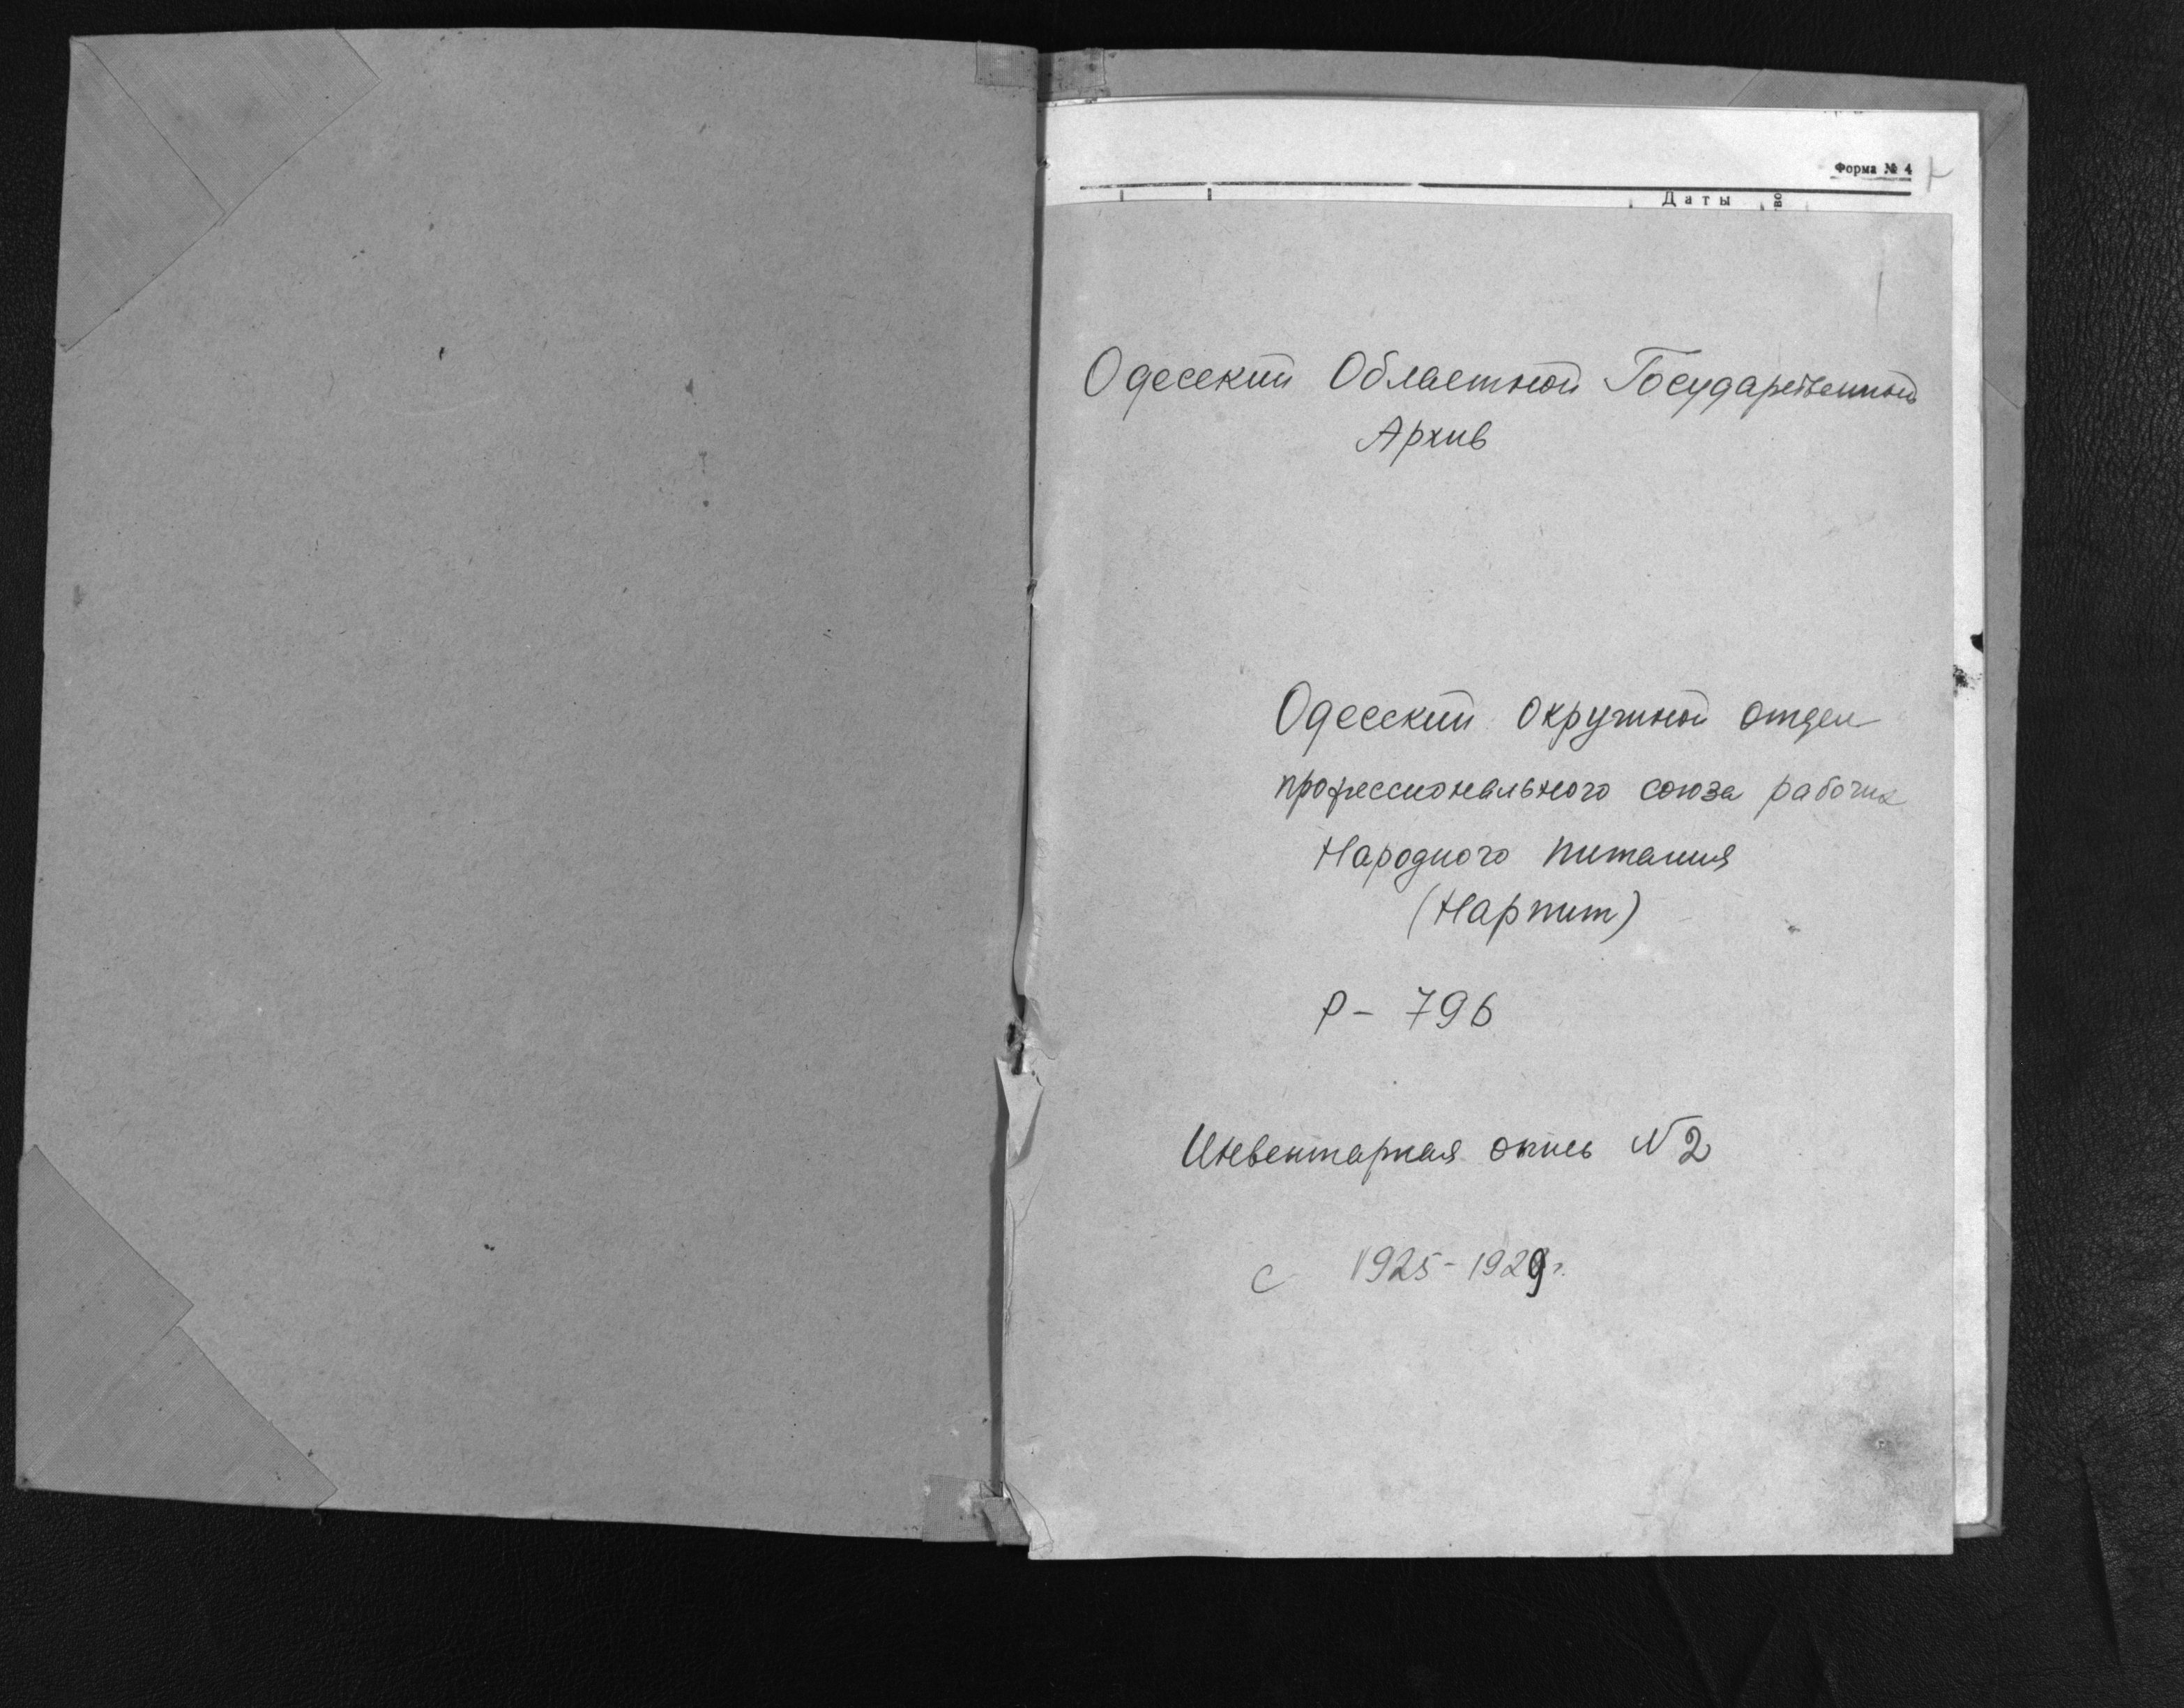 Форма № 4
Даты
Одесский Областной Государственный
Архив
Одесский окружной отдел
профессионального союза рабочих
Народного питания
(Нарпит)
Р - 796
Инвентарная опись N 2
с 1925 - 1929 г.